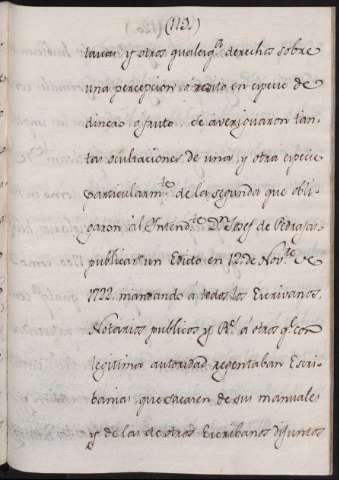 (113.)
tavas y otros qualesq.ˢ derechos sobre
una percepcion, o redito en especie de
dinero, o fruto se averiguaron tan-
tas ocultaciones de una, y otra especie
particularm.ᵗᵉ de la segunda que obli-
garon al Intend.ᵗᵉ Dⁿ Josef de Pedrajas
publicar un Edicto en 12 de Nov.ᵗᵉ de
1722 mandando a todos los Escrivanos,
Notarios publicos y R.ˢ á otros q.ᵉ con
legitima autoridad regentaban Escri-
banias, que sacasen de sus manuales
y de los de otros Escribanos difuntos